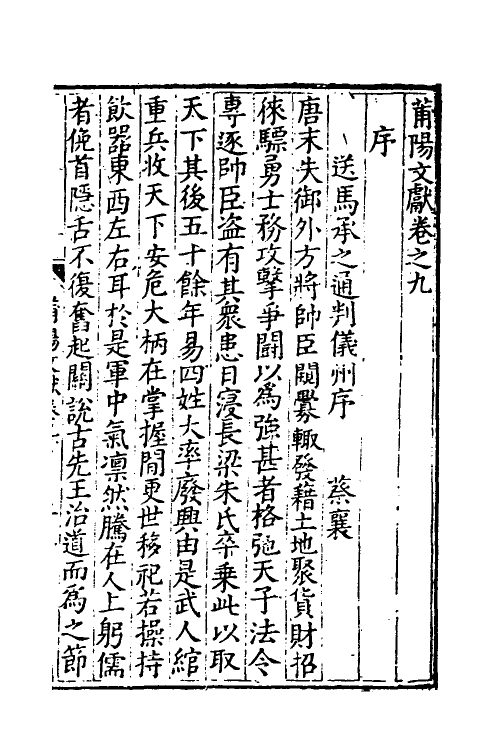 莆陽文獻卷之九
序
送馬承之通判儀州序 蔡襄
唐末失御外方將帥臣閱釁輙發藉土地聚貨財招
徠驃勇士務攻擊爭鬪以為強甚者格弛天子法令
專逐帥臣盗有其衆患日寖長梁朱氏卒乗此以取
天下其後五十餘年易四姓大率廢興由是武人綰
重兵收天下安危大柄在掌握間更世移祀若操持
飲器東西左右耳於是軍中氣凛然騰在人上躬儒
者俛首隱舌不復奮起關說古先王治道而為之節